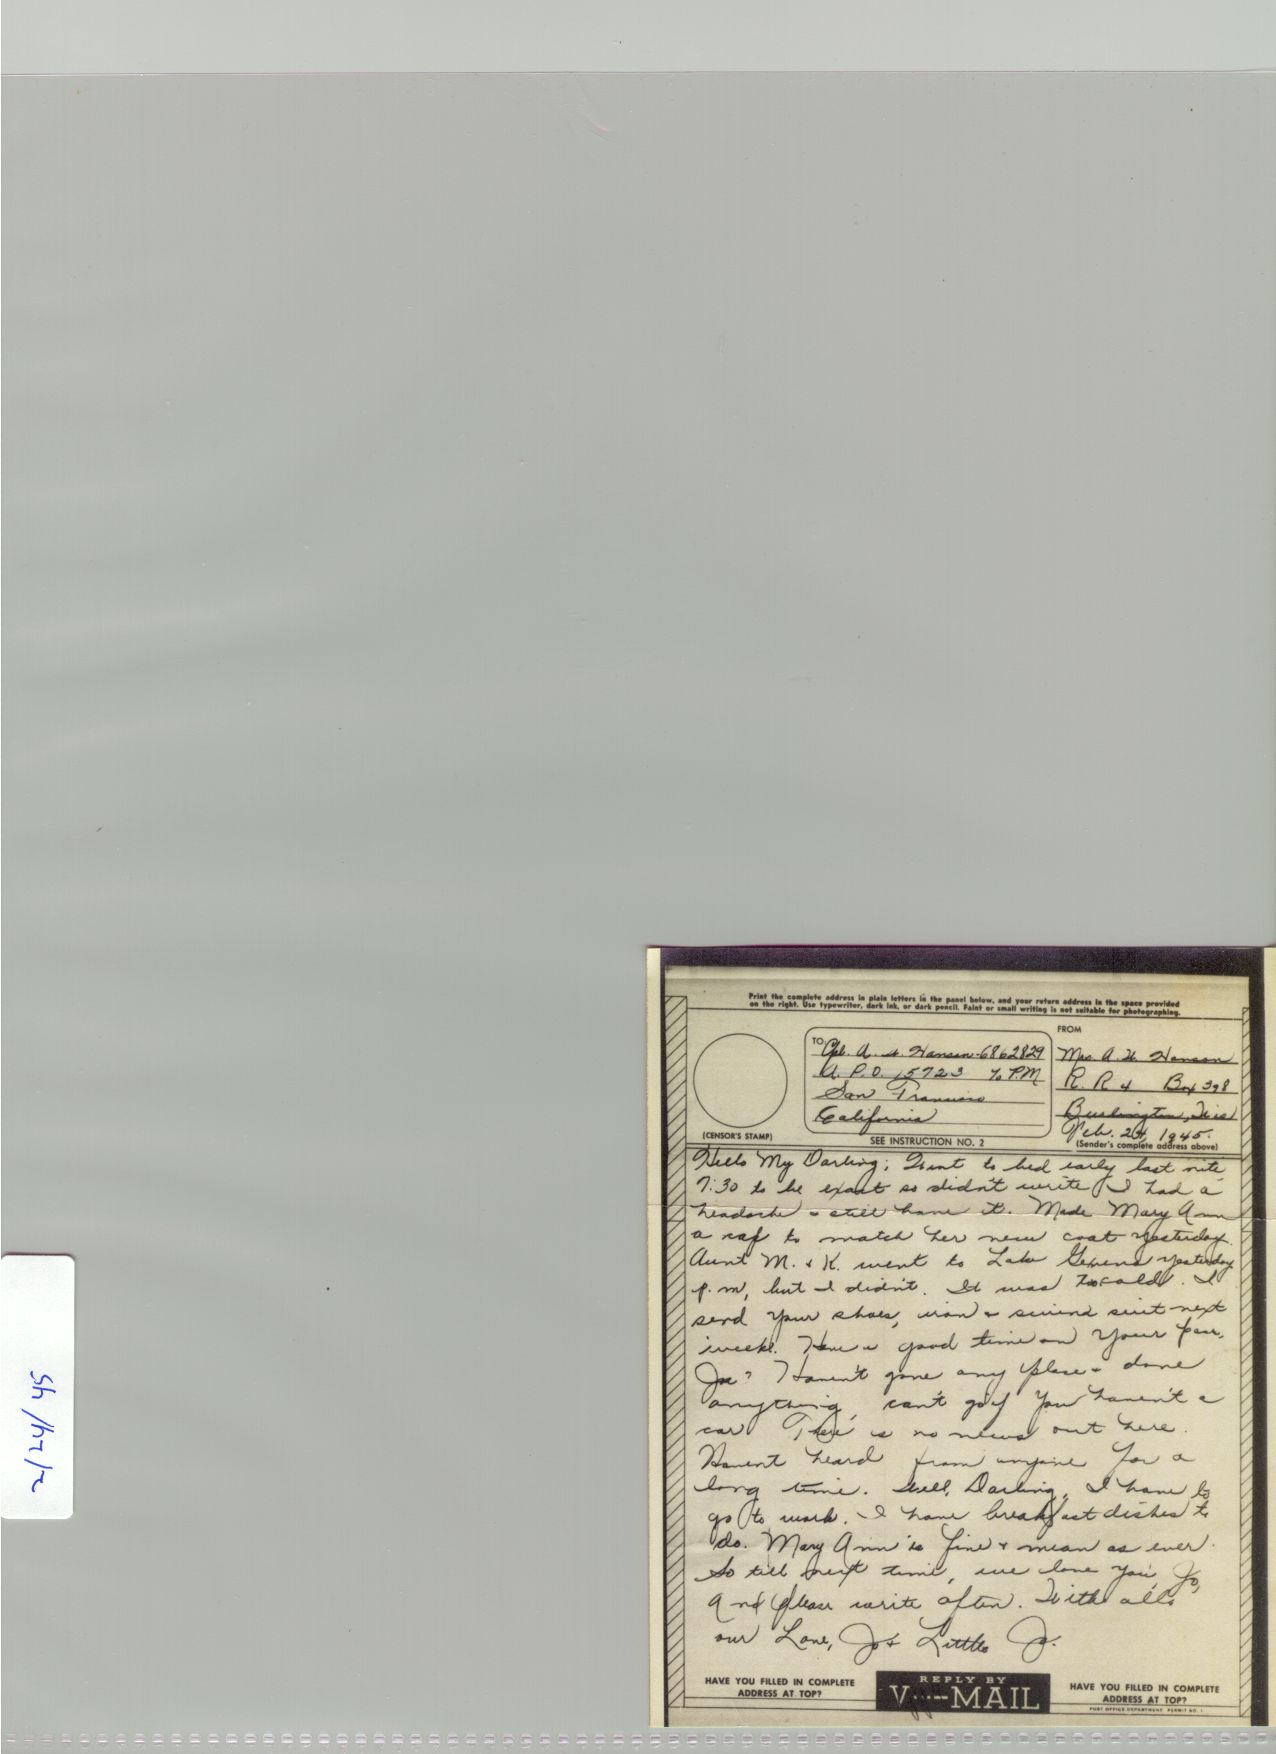 Print the complete address in plain letters in the panel below, and your return address in the space provided
on the right. Use typewriter, dark ink, or dark pencil. Faint or small writing is not suitable for photographing.
FROM
TO
Cpl. A. H. Hansen-6862829
A. P.O. 15723 % P.M
San Francisco
California
Mrs. A. H. Hansen
R. R 4 Box 398
Burlington, Wis
Feb. 24, 1945.
(CENSOR'S STAMP)
SEE INSTRUCTION NO. 2
(Sender's complete address above)
Hello My Darling; Went to bed early last nite
7:30 to be exact so didn't write. I had a
headache & still have it. Made Mary Ann
a cap to match her new coat yesterday.
Aunt M. & K. went to Lake Geneva yesterday
p.m, but I didn't. It was too cold. I
send your shoes, iron & swim suit next
week. Have a good time on your pass,
Jo? Haven't gone any place & done
anything, can't go if you haven't a
car. There is no news out here.
Havent heard from anyone for a
long time. Well, Darling, I have to
go to work. I have breakfast dishes to
do. Mary Ann is fine & mean as ever.
So till next time, we love you, Jo,
And please write often. With all
our Love, Jo & Little Jo.
HAVE YOU FILLED IN COMPLETE
ADDRESS AT TOP?
REPLY BY
V···—MAIL
HAVE YOU FILLED IN COMPLETE
ADDRESS AT TOP?
POST OFFICE DEPARTMENT PERMIT NO. 1
2/24/45